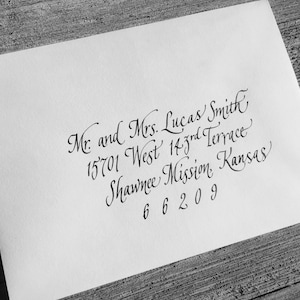 Mr. and Mrs. Lucas Smith
15701 West 143rd Terrace
Shawnee Mission, Kansas
66209